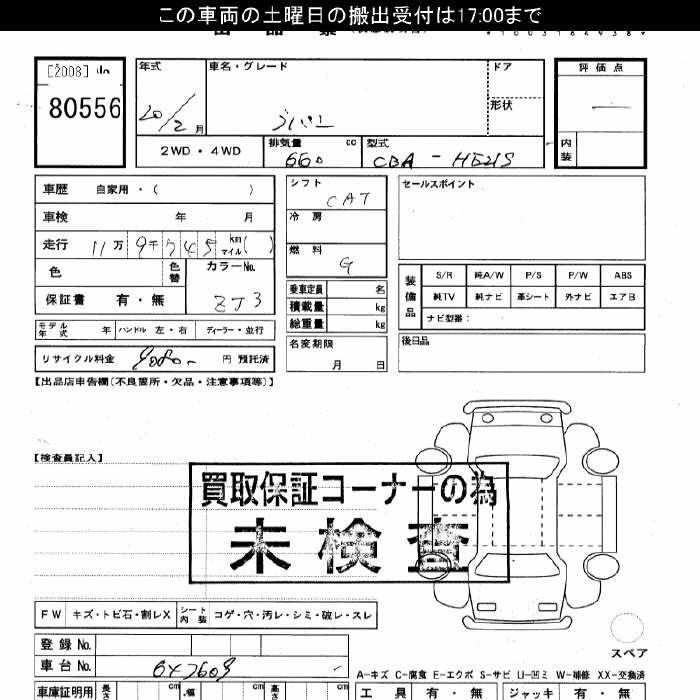 この車両の土曜日の搬出受付は17:00まで
[2008]
80556
年式 車名・グレード ドア 評価点
20/2月 ラパン 形状
2WD・4WD 排気量 cc 型式 内装
660 CBA - HE21S
車歴 自家用・( ) シフト CAT セールスポイント
車検 年 月 冷房
走行 11万9千745km マイル( ) 燃料 G
色 色替 カラーNo. ZJ3
保証書 有・無
装備品 S/R 純A/W P/S P/W ABS
純TV 純ナビ 革シート 外ナビ エアB
ナビ型番:
乗車定員 名
積載量 kg
総重量 kg
モデル年式 年 ハンドル 左・右 ディーラー・並行
名変期限 月 日
後日品
リサイクル料金 円 預託済
【出品店申告欄(不良箇所・欠品・注意事項等)】
【検査員記入】
買取保証コーナーの為
未検査
FW キズ・トビ石・割レX シート内装 コゲ・穴・汚レ・シミ・破レ・スレ
登録No.
車台No.
スペア
A-キズ C-腐食 E-エクボ S-サビ U-凹ミ W-補修 XX-交換済
車庫証明用 長さ cm 幅 cm 高さ cm 工具 有・無 ジャッキ 有・無